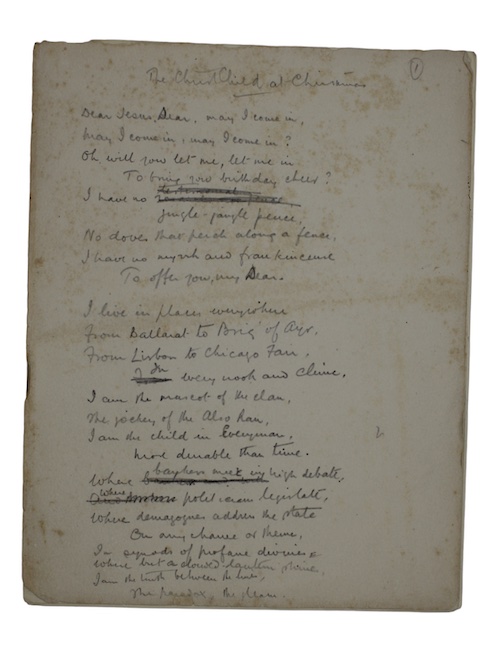 The Christ Child at Christmas
1
Dear Jesus, Dear, may I come in,
may I come in, may I come in?
Oh will you let me, let me in
To bring you birthday cheer?
I have no
jingle-jangle pence,
No doves that perch along a fence,
I have no myrrh and frankincense
To offer you, my Dear.
I live in places everywhere
From Ballarat to Brig' of Ayr,
From Lisbon to Chicago Fair,
every nook and Clime.
I am the mascot of the clan,
The jockey of the Also Ran,
I am the child in Everyman,
more durable than time.
Where high debate,
Where legislate,
Where demagogues address the state
On any chance or theme,
In squads of profane divines
Where but a clowed lantern shine,
I am the truth between the lines,
The paradox, the dream.